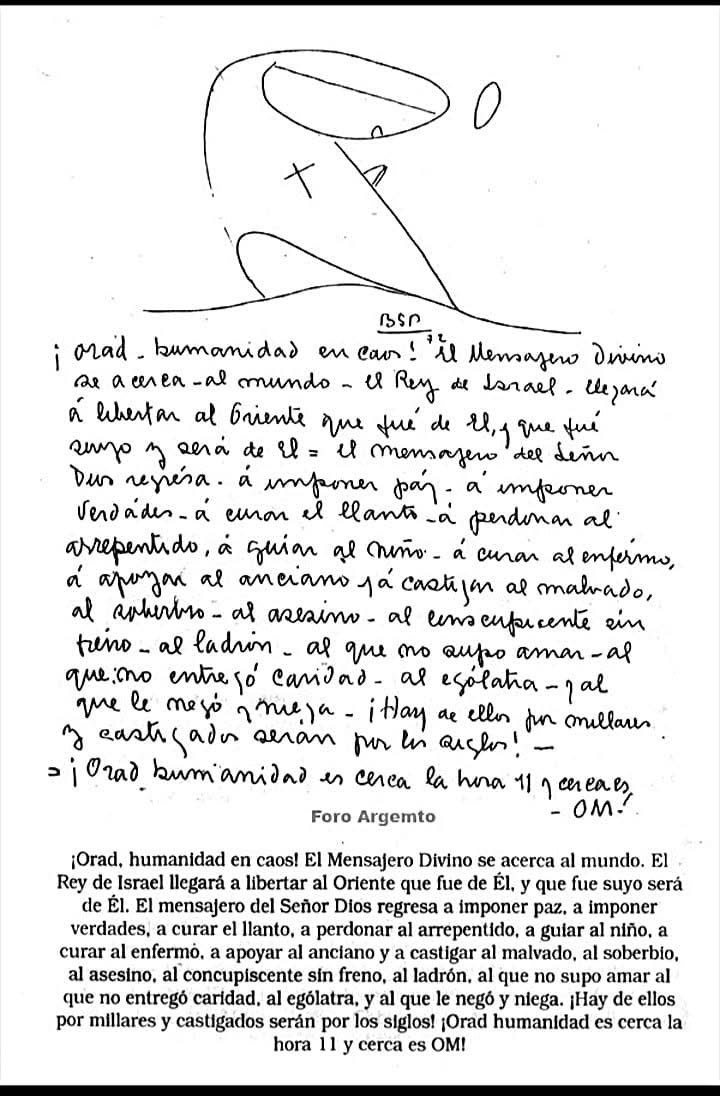 BSP
72
¡Orad - humanidad en caos! El Mensajero Divino
se acerca - al mundo - el Rey de Israel - llegará
á libertar al Oriente que fué de El, y que fué
suyo y será de El = el mensajero del Señor
Dios regresa. á imponer páz - a imponer
Verdades - á curar el llanto - á perdonar al
arrepentido, á guiar al niño - á curar al enfermo,
á apoyar al anciano y á castigar al malvado,
al soberbio - al asesino - al concupicente sin
freno - al ladrón - al que no supo amar - al
que no entregó caridad - al ególatra - y al
que le negó y niega - ¡Hay de ellos por millares
y castigados serán por los siglos! -
= ¡Orad humanidad es cerca la hora 11 y cerca es
- OM!
Foro Argemto
¡Orad, humanidad en caos! El Mensajero Divino se acerca al mundo. El
Rey de Israel llegará a libertar al Oriente que fue de Él, y que fue suyo será
de Él. El mensajero del Señor Dios regresa a imponer paz, a imponer
verdades, a curar el llanto, a perdonar al arrepentido, a guiar al niño, a
curar al enfermo, a apoyar al anciano y a castigar al malvado, al soberbio,
al asesino, al concupiscente sin freno, al ladrón, al que no supo amar al
que no entregó caridad, al ególatra, y al que le negó y niega. ¡Hay de ellos
por millares y castigados serán por los siglos! ¡Orad humanidad es cerca la
hora 11 y cerca es OM!